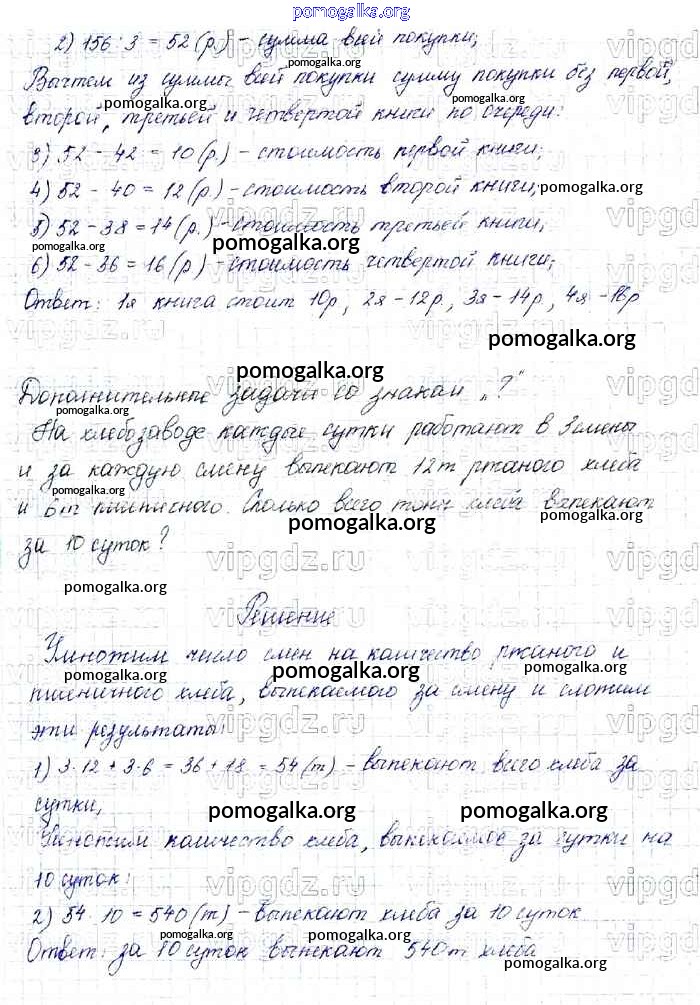 pomogalka.org
2) 156 : 3 = 52 (р.) - сумма всей покупки;
Вычтем из суммы всей покупки сумму покупки без первой,
второй, третьей и четвертой книги по очереди:
3) 52 - 42 = 10 (р.) - стоимость первой книги;
4) 52 - 40 = 12 (р) - стоимость второй книги;
5) 52 - 38 = 14 (р.) - стоимость третьей книги;
6) 52 - 36 = 16 (р) - стоимость четвертой книги;
Ответ: 1я книга стоит 10р, 2я - 12р, 3я - 14р, 4я - 16р
Дополнительные задачи со знаком „?"
На хлебозаводе каждые сутки работают в 3 смены
и за каждую смену выпекают 12т ржаного хлеба
и 6т пшеничного. Сколько всего тонн хлеба выпекают
за 10 суток?
Решение
Умножим число смен на количество ржаного и
пшеничного хлеба, выпекаемого за смену и сложим
эти результаты:
1) 3 · 12 + 3 · 6 = 36 + 18 = 54 (т) - выпекают всего хлеба за
сутки,
Умножим количество хлеба, выпекаемое за сутки на
10 суток:
2) 54 · 10 = 540 (т) - выпекают хлеба за 10 суток
Ответ: за 10 суток выпекают 540т хлеба